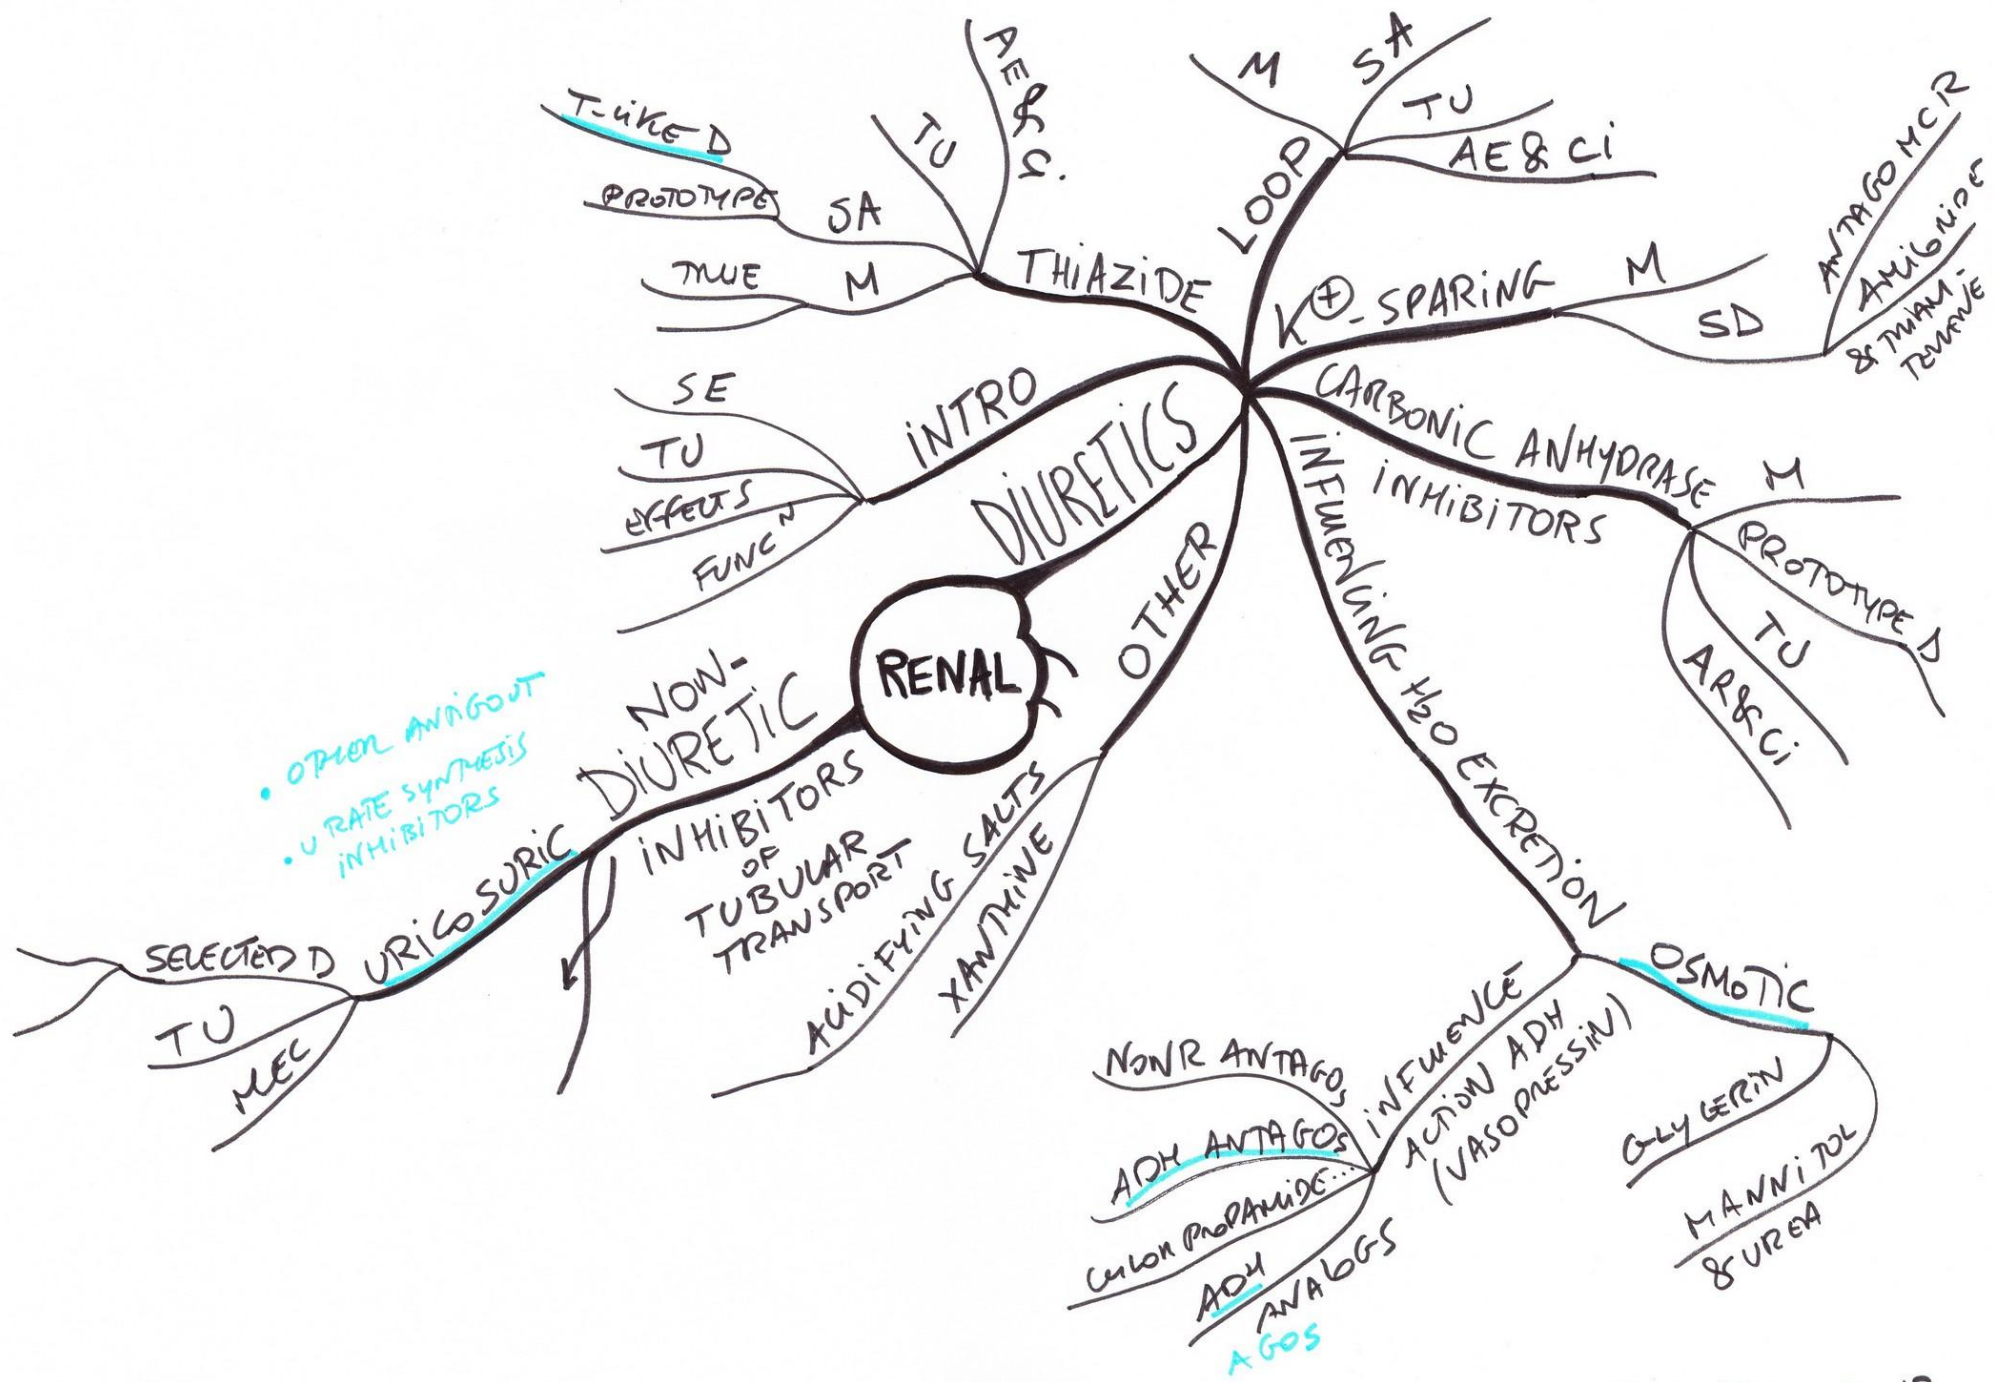 RENAL
DIURETICS
INTRO
SE
TU
EFFECTS
FUNC N
THIAZIDE
AE & Ci
TU
SA
T-LIKE D
PROTOTYPE
M
TRUE
LOOP
M
SA
TU
AE & Ci
K+ - SPARING
M
SD
ANTAGO MCR
AMILORIDE
& TRIAM-
TERENE
CARBONIC ANHYDRASE
INHIBITORS
M
PROTOTYPE D
TU
AR & Ci
INFLUENCING H2O EXCRETION
OSMOTIC
GLYCERIN
MANNITOL
& UREA
INFLUENCE
ACTION ADH
(VASOPRESSIN)
NONR ANTAGOS
ADH ANTAGOS
CHLORPROPAMIDE...
ADH
ANALOGS
AGOS
OTHER
ACIDIFYING SALTS
XANTHINE
NON-
DIURETIC
INHIBITORS
OF
TUBULAR
TRANSPORT
URICOSURIC
SELECTED D
TU
MEC
• OTHER ANTIGOUT
• URATE SYNTHESIS
INHIBITORS